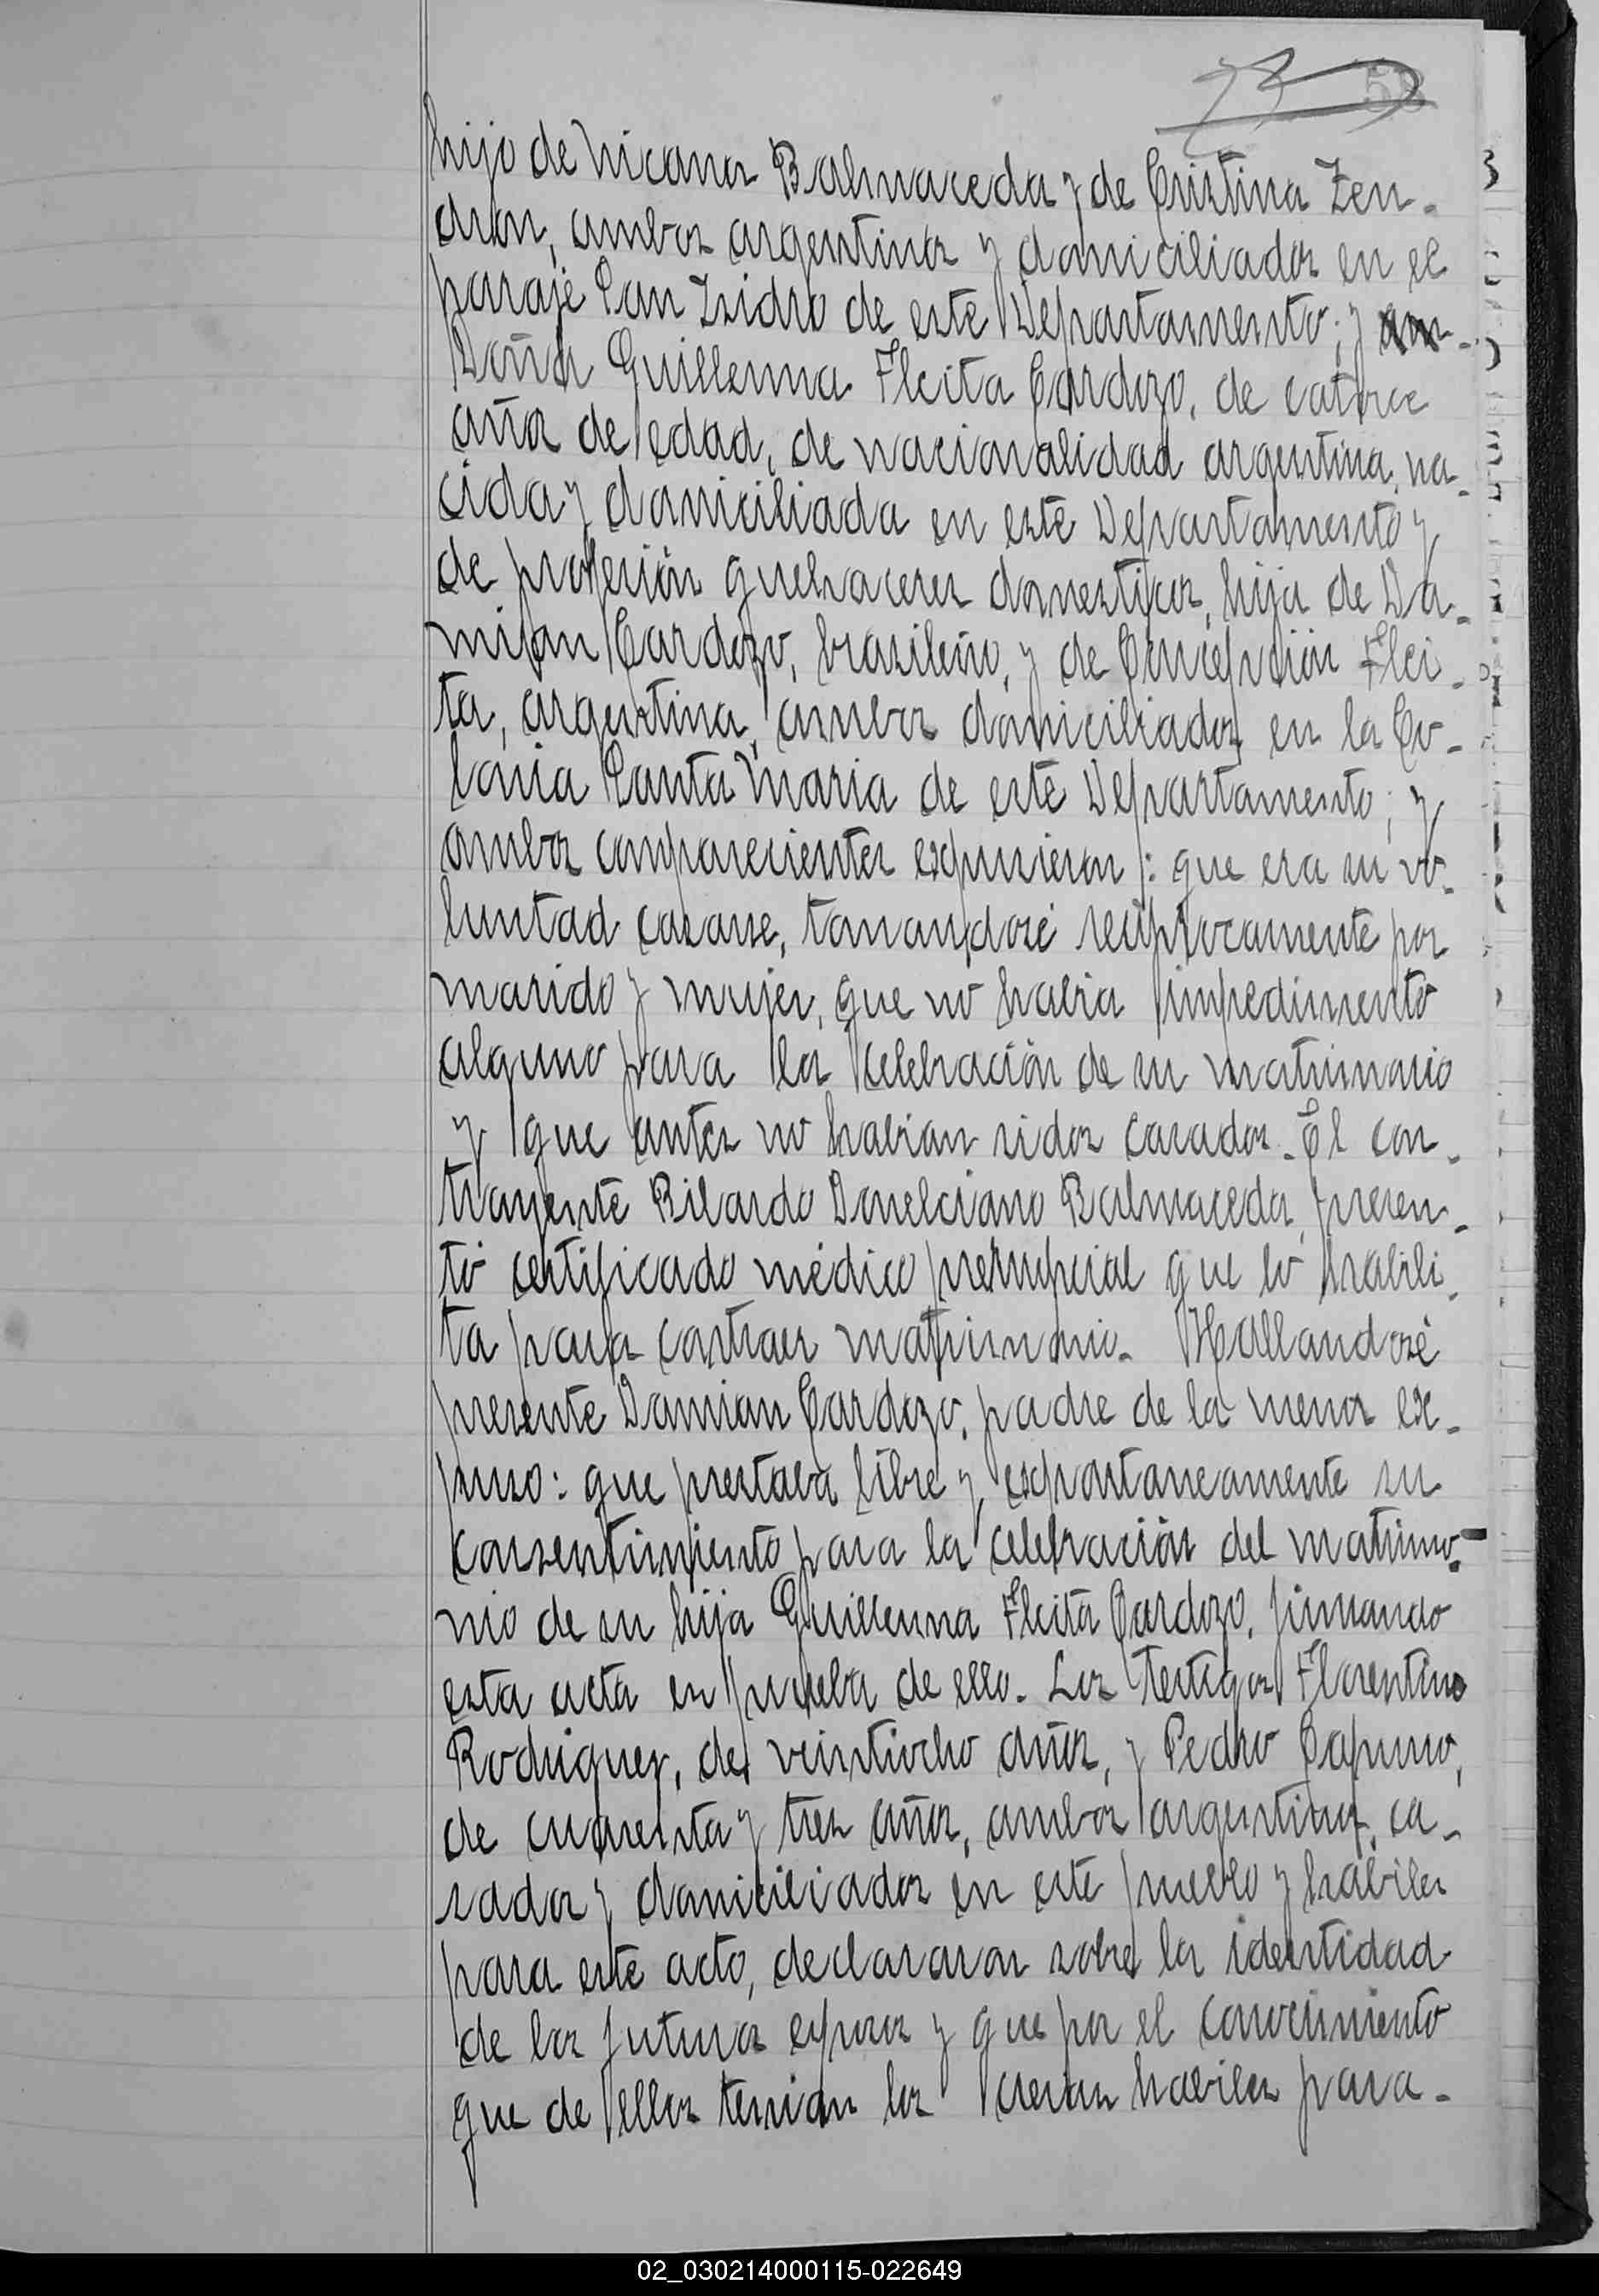 58
hijo de Nicanor Balmaceda y de Cristina Zen-
dron, ambos argentinos y domiciliados en el
paraje San Isidro de este Departamento; y
Doña Guillerma Fleita Cardozo, de catorce
años de edad, de nacionalidad argentina, na-
cida y domiciliada en este Departamento y
de profesión quehaceres domesticos, hija de Da-
mian Cardozo, brasileño, y de Concepción Flei-
ta, argentina, ambos domiciliados en la Co-
lonia Santa Maria de este Departamento; y
ambos comparecientes expusieron: que era su vo-
luntad casarse, tomandosé reciprocamente por
marido y mujer, que no habia impedimento
alguno para la celebración de su matrimonio
y que antes no habian sidos casados. El con-
trayente Bilardo Donelciano Balmaceda, presen-
tó certificado médico prenupcial que lo habili-
ta para contraer matrimonio. Hallandosé
presente Damian Cardozo, padre de la menor ex-
puso: que prestaba libre y expontaneamente su
consentimiento para la celebración del matrimo-
nio de su hija Guillerma Fleita Cardozo, firmando
esta acta en prueba de ello. Los testigos Florentino
Rodriguez, de veintiocho años, y Pedro Capuno,
de cuarenta y tres años, ambos argentinos, ca-
sados y domiciliados en este pueblo y habiles
para este acto, declararon sobre la identidad
de los futuros esposos y que por el conocimiento
que de ellos tenian los creian habiles para-
02_030214000115-022649